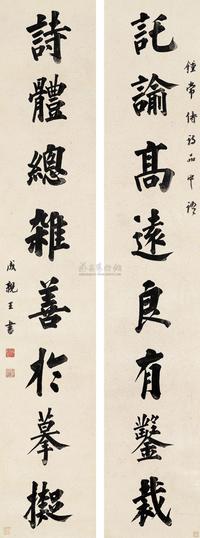 鍾常侍詩品中語
託諭髙遠良有鑒裁
詩體總雜善於摹擬
成親王書